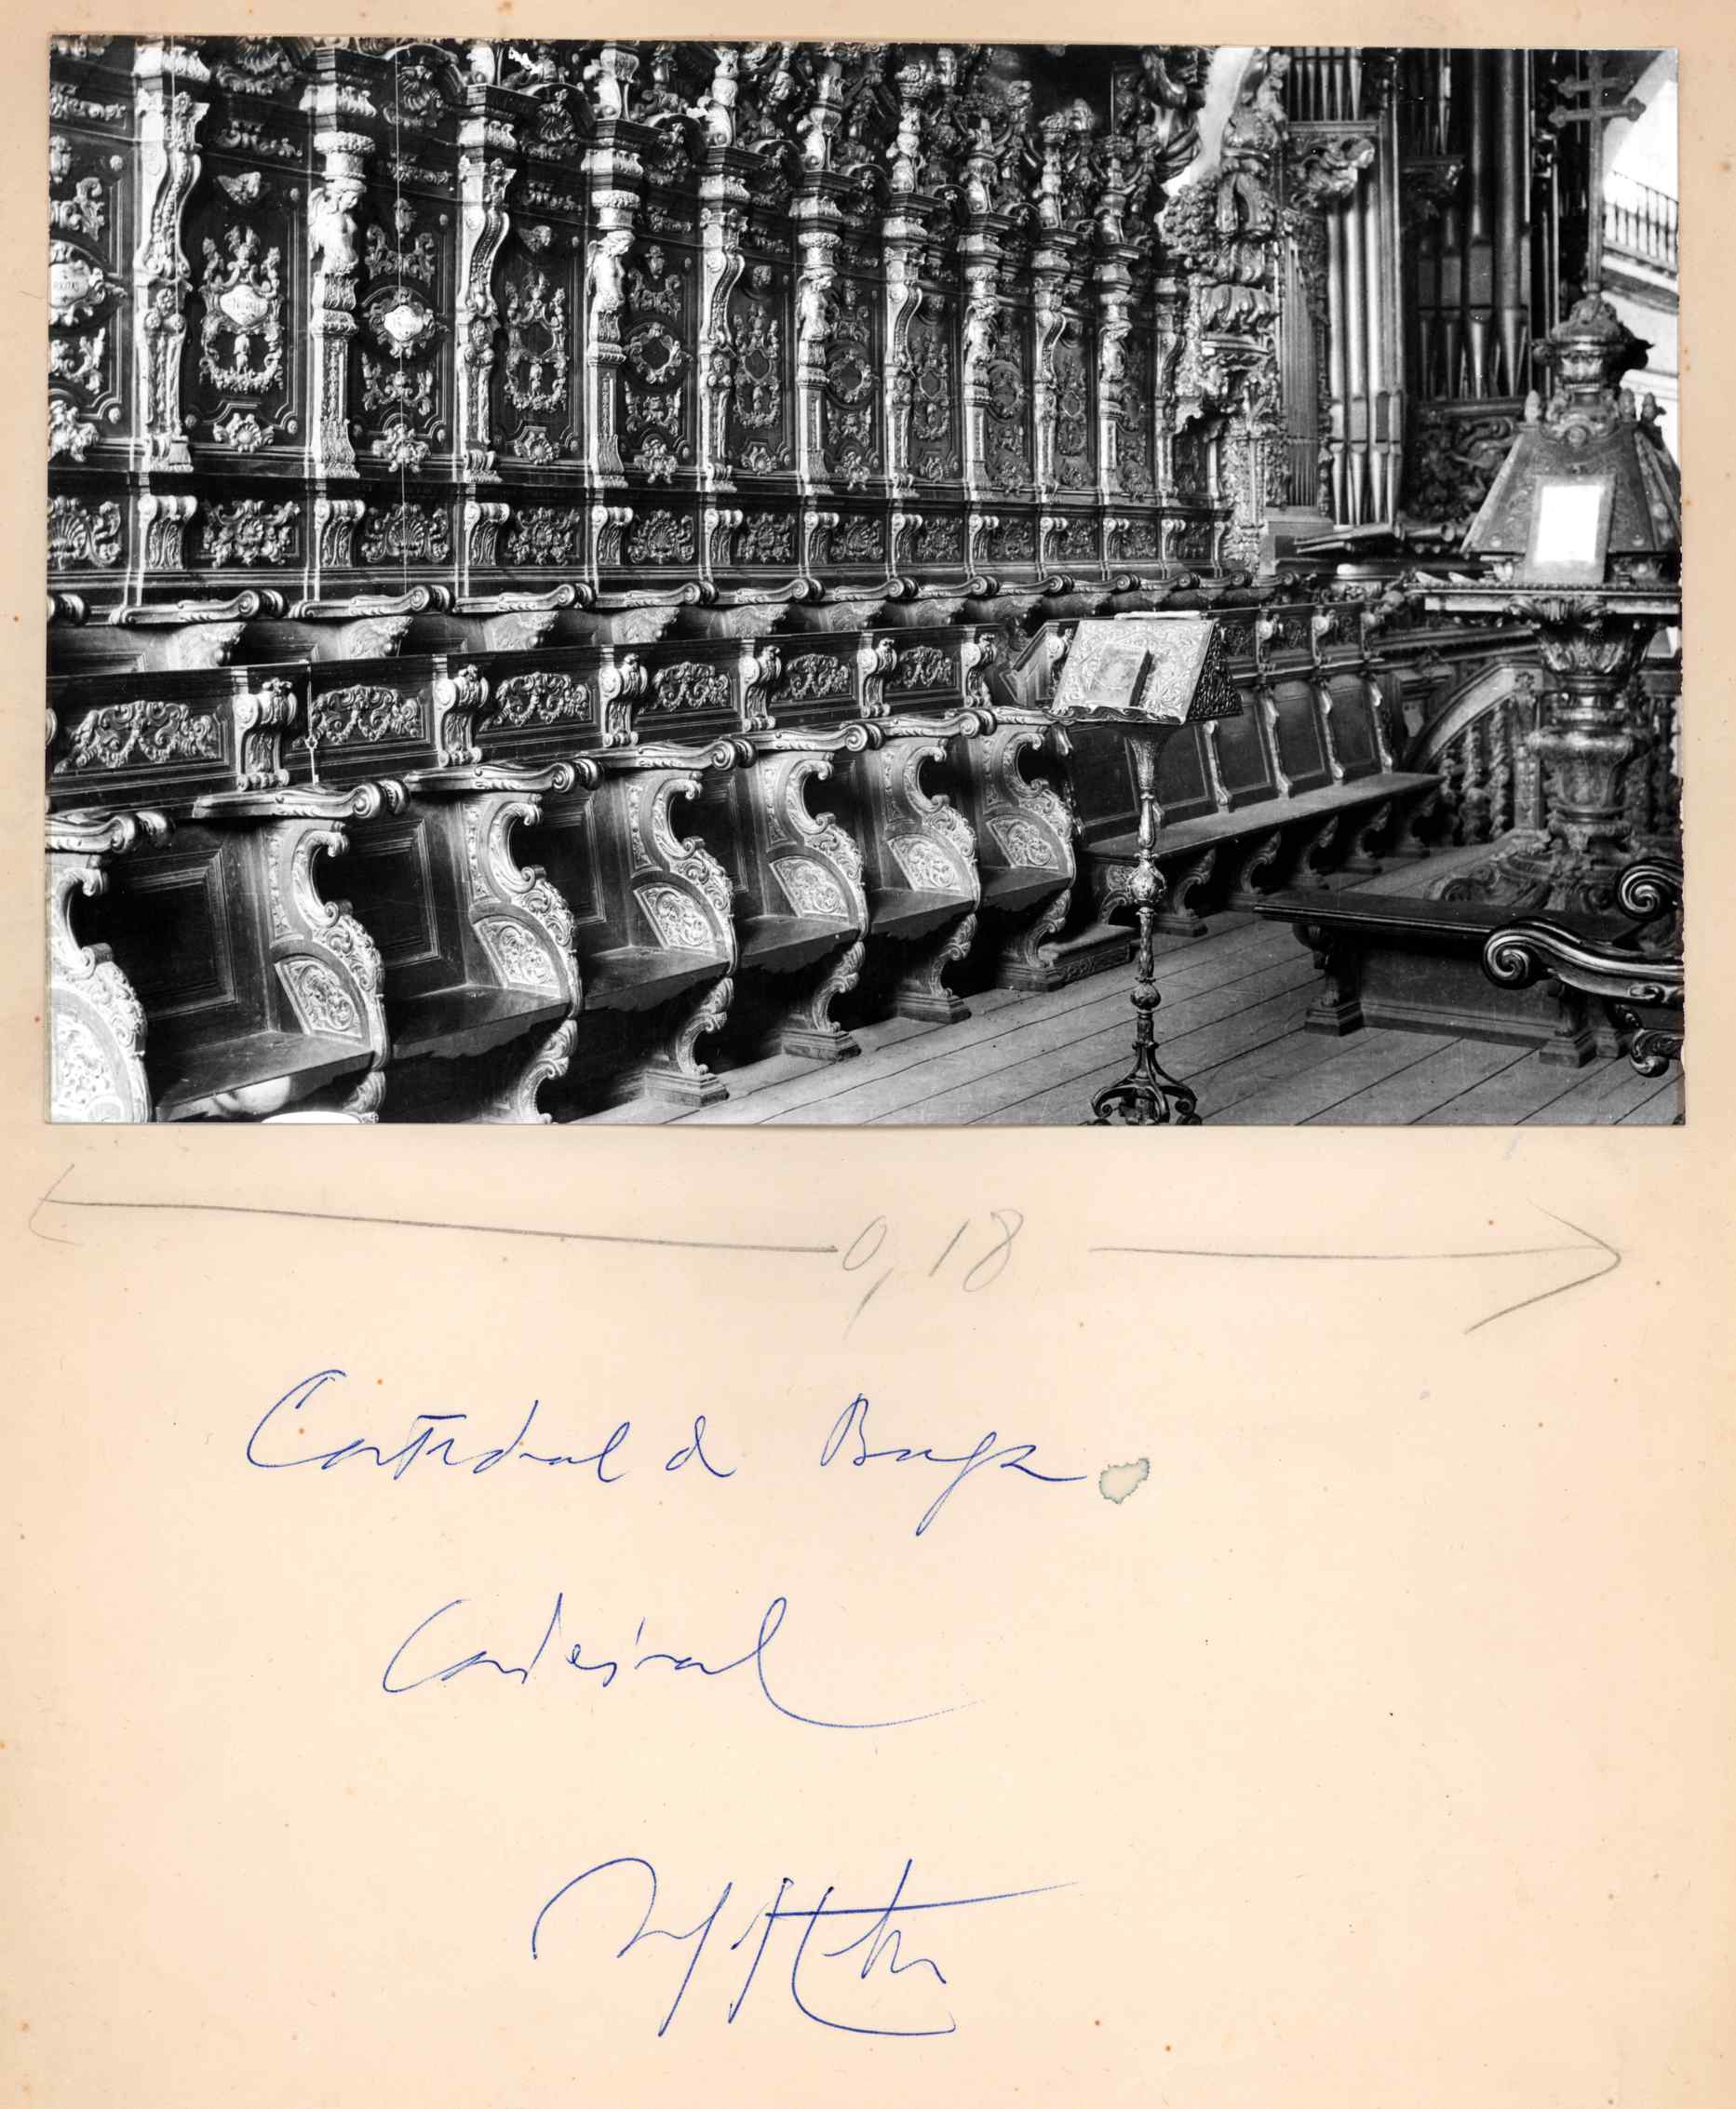 0,18
Catedral de Braga
Cadeiral